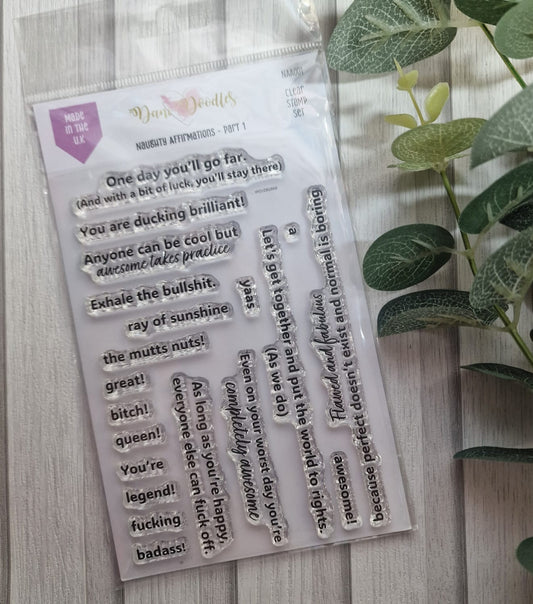 MADE
IN THE
U.K
Dani Doodles
NAAF01
CLEAR
STAMP
SET
NAUGHTY AFFIRMATIONS - PART 1
One day you'll go far.
(And with a bit of luck, you'll stay there)
You are ducking brilliant!
Anyone can be cool but
awesome takes practice
Exhale the bullshit.
ray of sunshine
the mutts nuts!
great!
bitch!
queen!
You're
legend!
fucking
badass!
yaas
a
As long as you're happy,
everyone else can fuck off.
Even on your worst day you're
completely awesome
Let's get together and put the world to rights
(As we do)
awesome!
Flawed and fabulous
because perfect doesn't exist and normal is boring